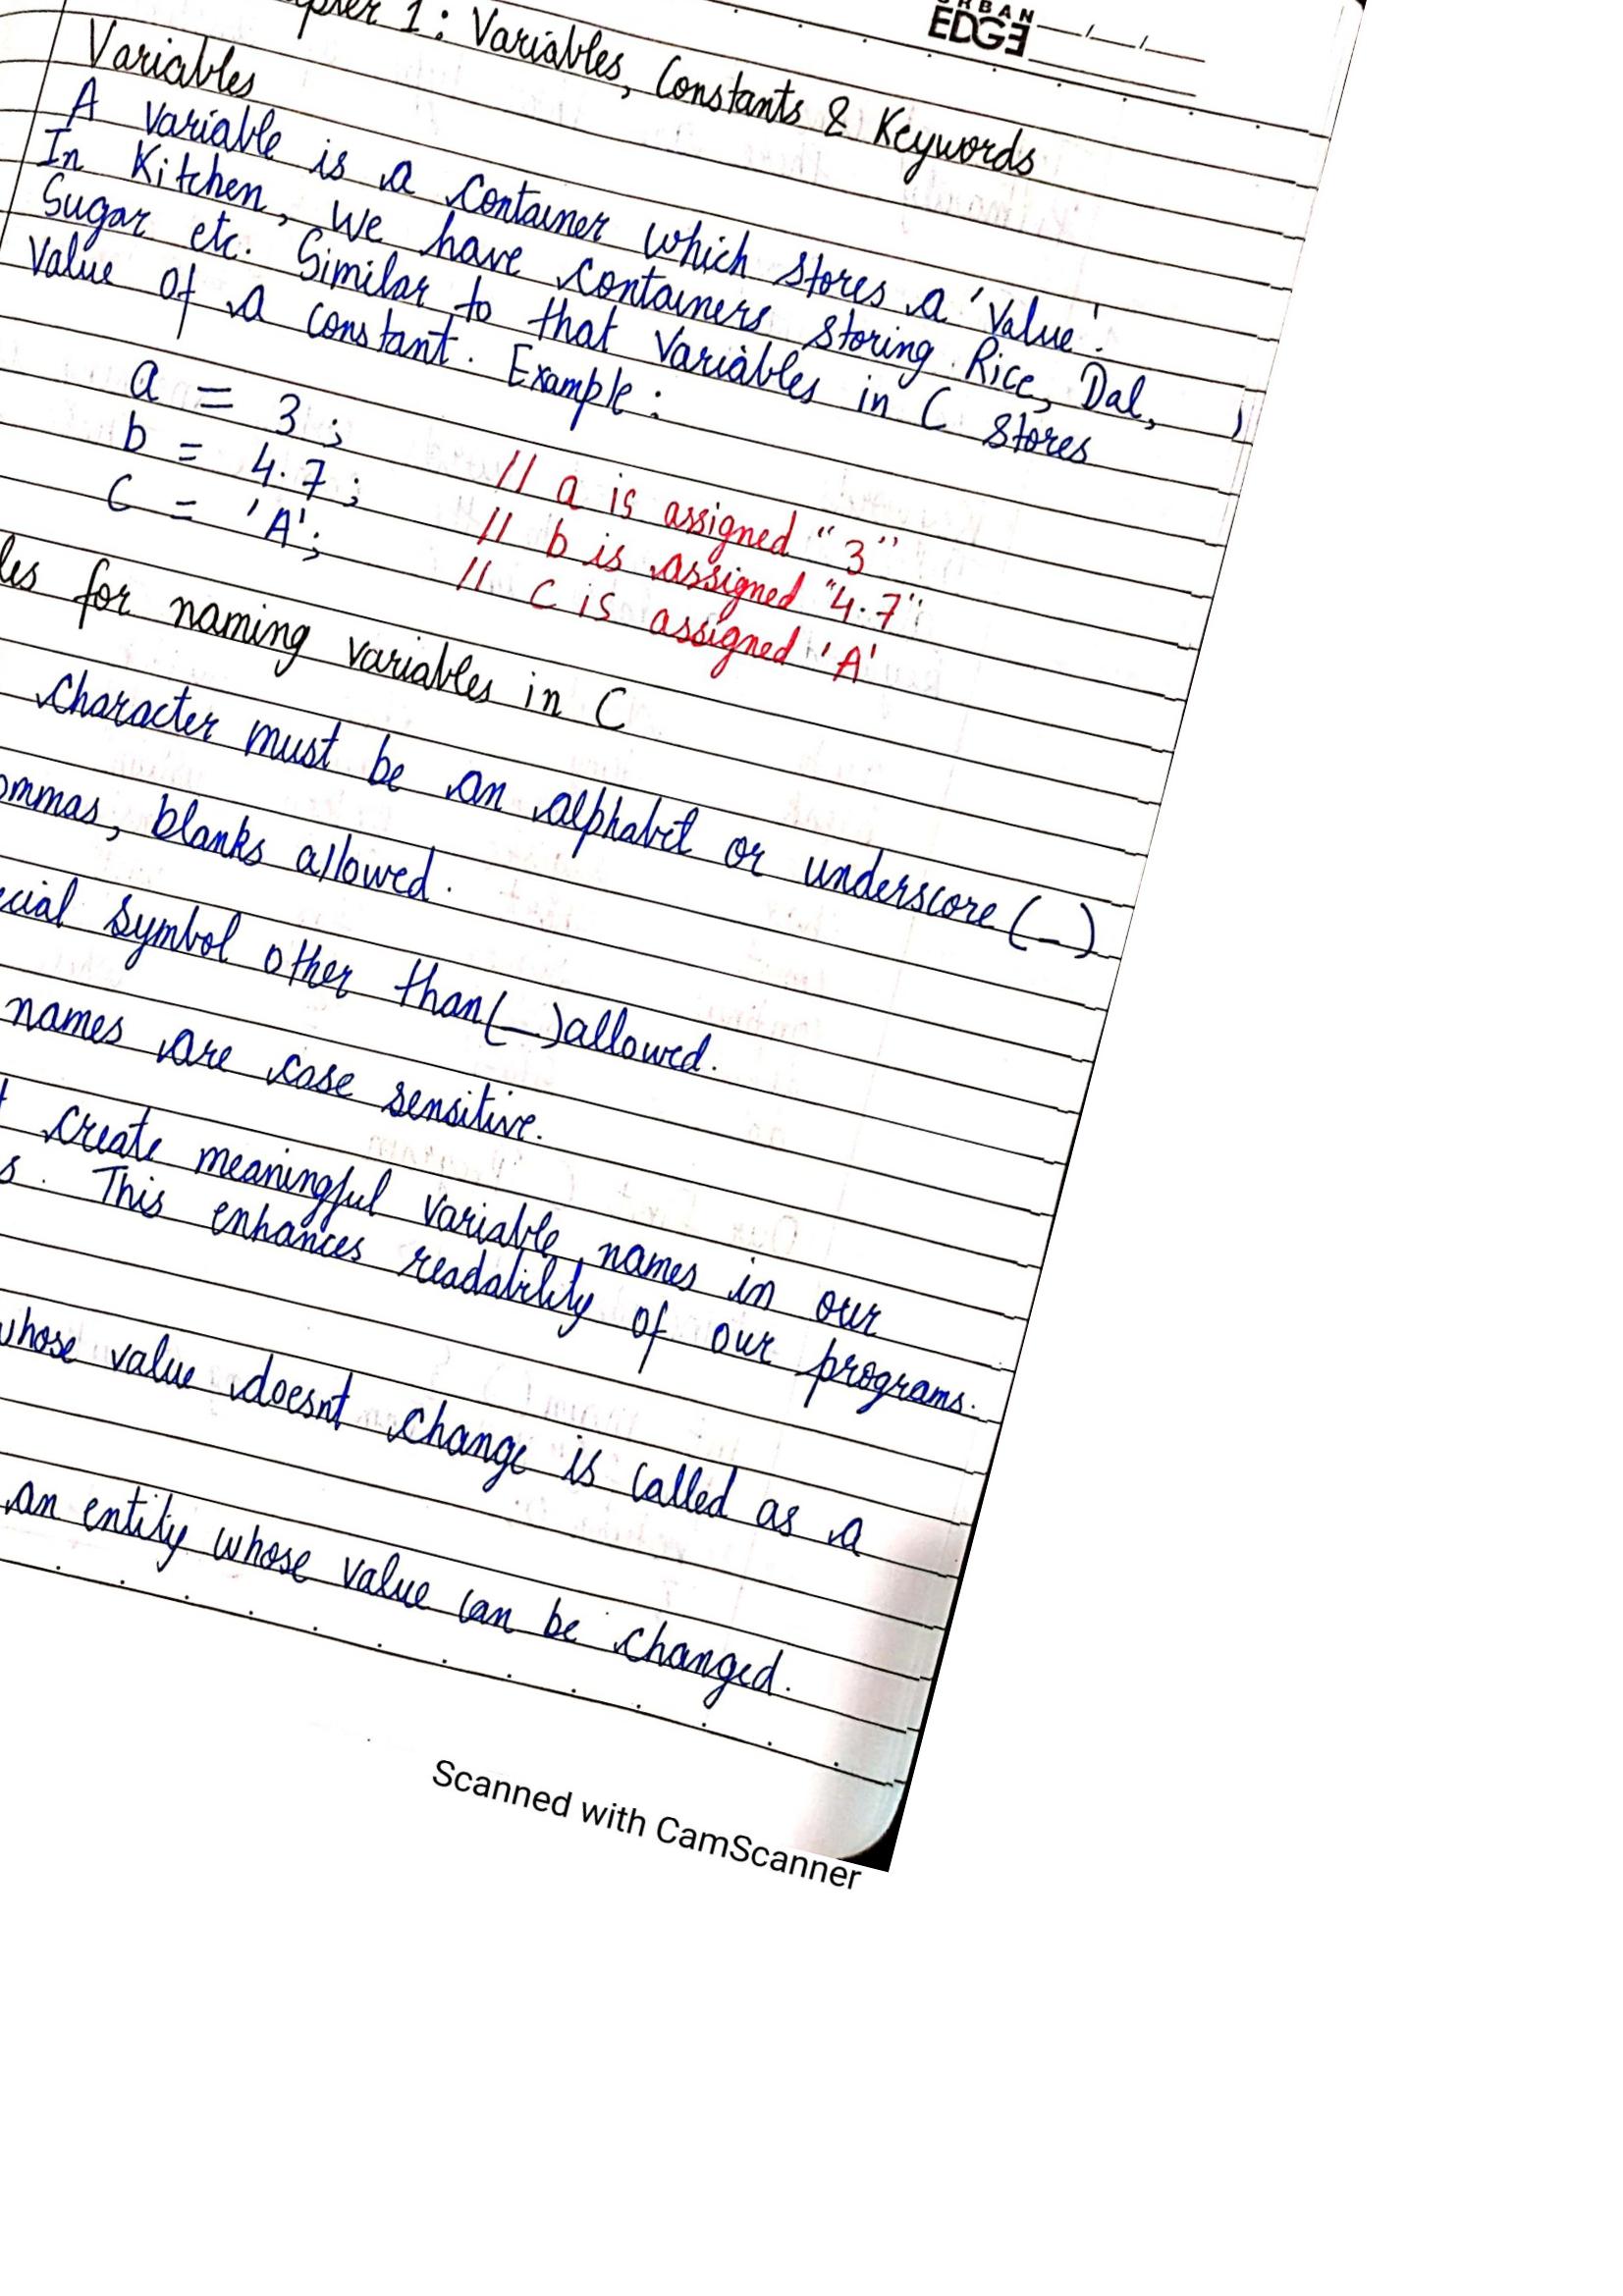 URBAN
EDGE
1: Variables, Constants & Keywords
Variables
A Variable is a Container which stores a 'Value'.
In Kitchen, We have Containers storing Rice, Dal,
Sugar etc. Similar to that Variables in C Stores
Value of a constant. Example:
a = 3; // a is assigned "3"
b = 4.7; // b is assigned "4.7"
C = 'A'; // C is assigned 'A'
for naming variables in C
Character must be an alphabet or underscore (_)
blanks allowed.
symbol other than (_) allowed.
names are case sensitive.
Create meaningful Variable names in our
This enhances readability of our programs.
whose value doesnt change is called as a
an entity whose value can be changed.
Scanned with CamScanner